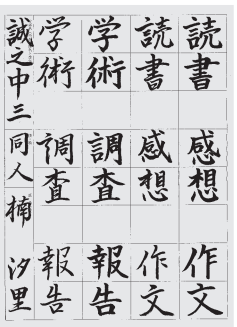 読書
感想
作文
読書
感想
作文
学術
調査
報告
学術
調査
報告
誠之中三
同人
楠
汐里